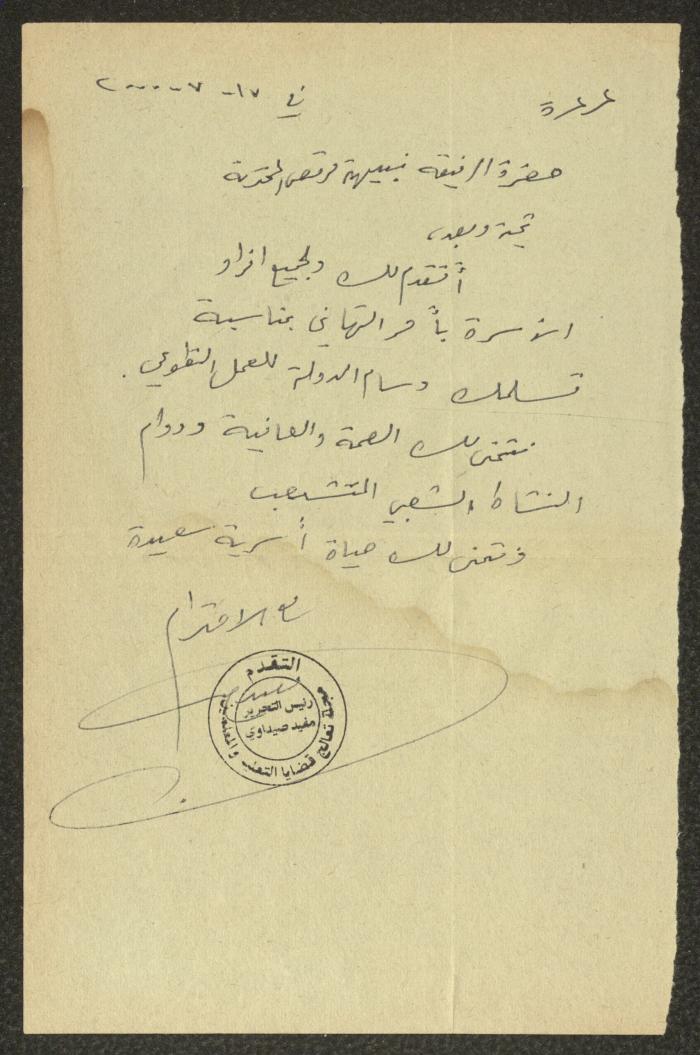 عرعرة في ١٧-٧-٢٠٠٠
حضرة الرفيقة نبيهة مرقص المحترمة
تحية وبعد،
أتقدم لك ولجميع افراد
الأسرة بأحر التهاني بمناسبة
تسلمك وسام الدولة للعمل التطوعي.
نتمنى لك الصحة والعافية ودوام
النشاط الشعبي المتشعب
ونتمنى لك حياة أسرية سعيدة
مع الاحترام
التقدم
رئيس التحرير
مفيد صيداوي
تعالج قضايا التعليم والمعلمين